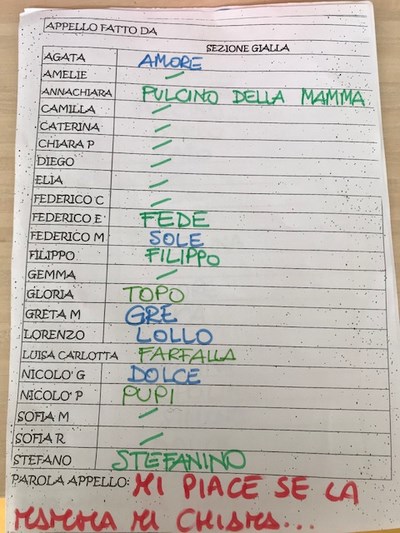 APPELLO FATTO DA
SEZIONE GIALLA
AGATA AMORE
AMELIE /
ANNACHIARA PULCINO DELLA MAMMA
CAMILLA /
CATERINA /
CHIARA P /
DIEGO /
ELIA /
FEDERICO C /
FEDERICO E FEDE
FEDERICO M SOLE
FILIPPO FILIPPO
GEMMA /
GLORIA TOPO
GRETA M GRE
LORENZO LOLLO
LUISA CARLOTTA FARFALLA
NICOLO' G DOLCE
NICOLO' P PUPI
SOFIA M /
SOFIA R /
STEFANO STEFANINO
PAROLA APPELLO: MI PIACE SE LA
MAMMA MI CHIAMA...